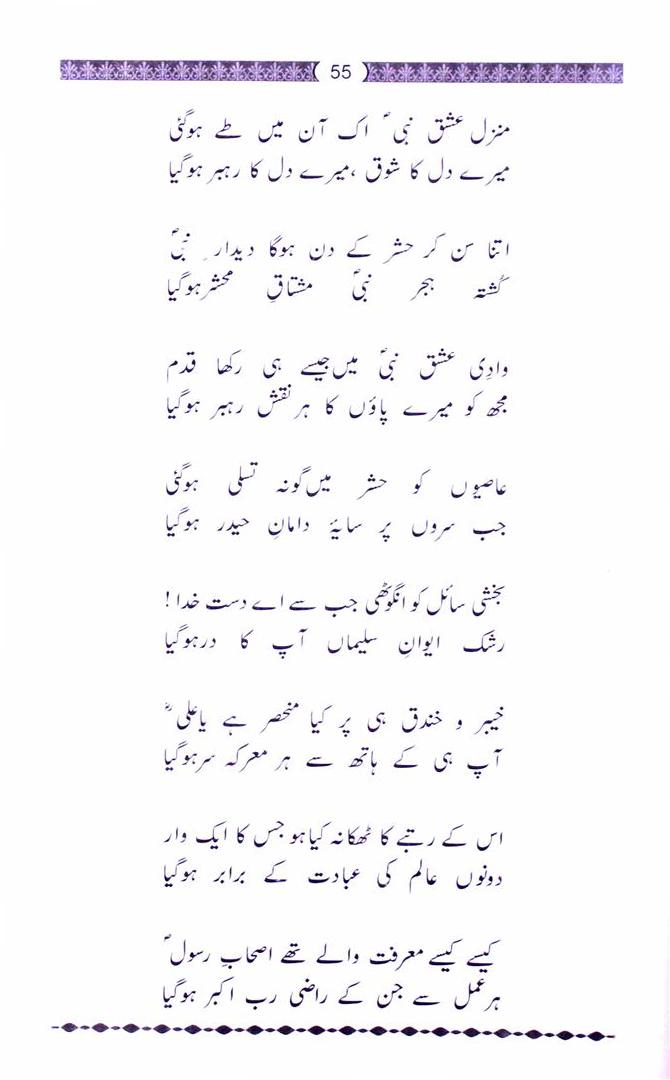 55
منزل عشق نبیؐ اک آن میں طے ہوگئی
میرے دل کا شوق ،میرے دل کا رہبر ہوگیا
اتنا سن کر حشر کے دن ہوگا دیدارِ نبیؐ
کُشتہ ہجر نبیؐ مشتاقِ محشر ہوگیا
وادِی عشق نبیؐ میں جیسے ہی رکھا قدم
مجھ کو میرے پاؤں کا ہر نقش رہبر ہوگیا
عاصیوں کو حشر میں گونہ تسلی ہوگئی
جب سروں پر سایۂ دامانِ حیدر ہوگیا
بخشی سائل کو انگوٹھی جب سے اے دست خدا !
رشک ایوانِ سلیماں آپ کا در ہوگیا
خیبر و خندق ہی پر کیا منحصر ہے یا علیؓ
آپ ہی کے ہاتھ سے ہر معرکہ سر ہوگیا
اس کے رتبے کا ٹھکانہ کیا ہو جس کا ایک وار
دونوں عالم کی عبادت کے برابر ہوگیا
کیسے کیسے معرفت والے تھے اصحابِ رسولؐ
ہر عمل سے جن کے راضی رب اکبر ہوگیا